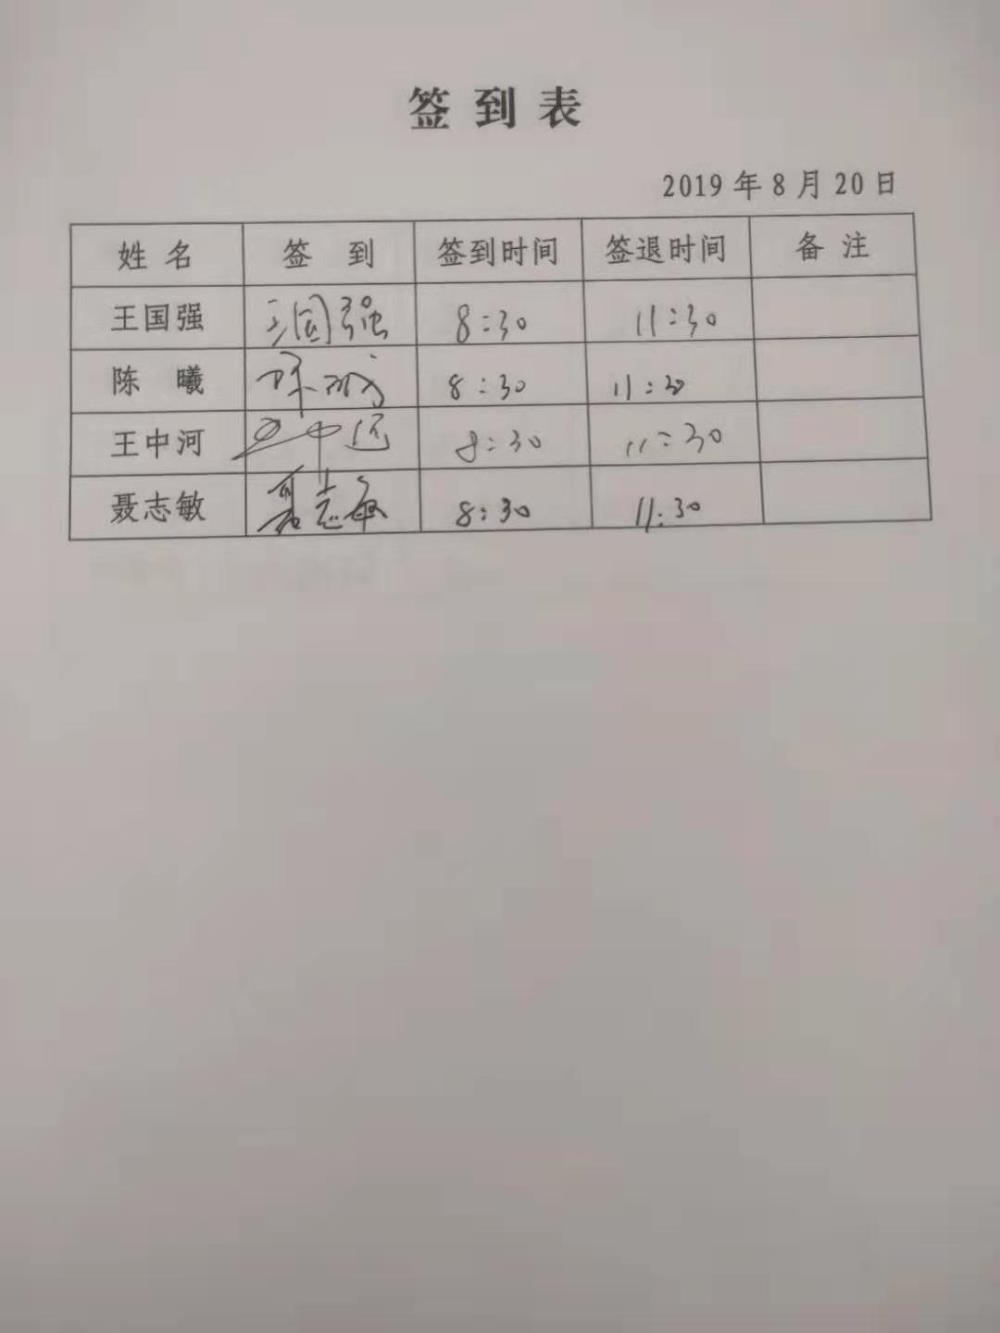 签到表
2019年8月20日
姓名 签到 签到时间 签退时间 备注
王国强 王国强 8:30 11:30
陈曦 陈曦 8:30 11:30
王中河 王中河 8:30 11:30
聂志敏 聂志敏 8:30 11:30